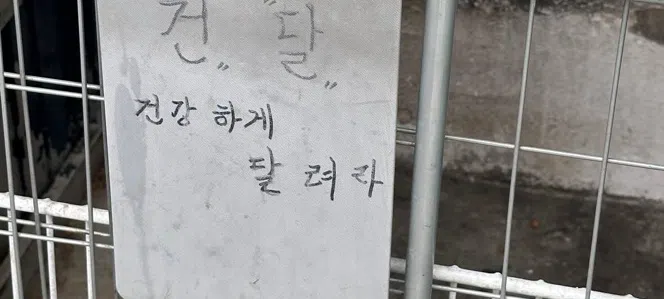 건" "달"
건강하게
달려라